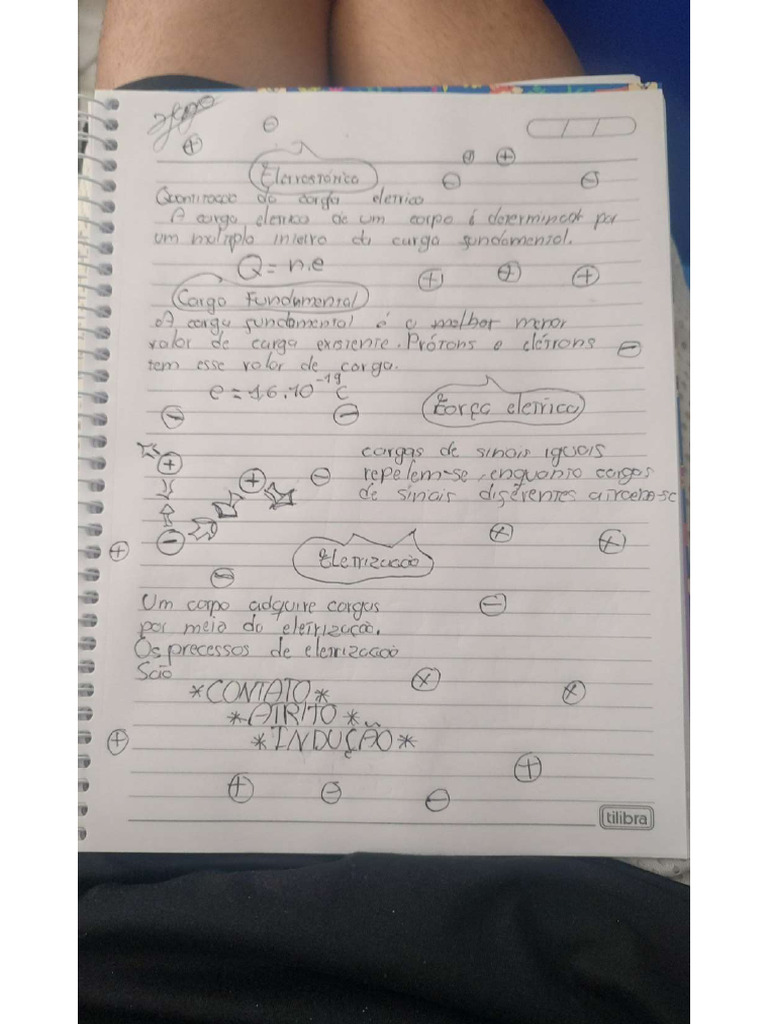 Eletrostática
Quantização da carga eletrica
A carga eletrica de um corpo é determinada por
um multiplo inteiro da carga fundamental.
Q = n.e
Carga Fundamental
A carga fundamental é o menor
valor de carga existente. Prótons e elétrons
tem esse valor de carga.
e = 1.6.10⁻¹⁹ C
Força eletrica
cargas de sinais iguais
repelem-se, enquanto cargas
de sinais diferentes atraem-se
Eletrização
Um corpo adquire cargas
por meio da eletrização.
Os precessos de eletrização
São
*CONTATO*
*ATRITO*
*INDUÇÃO*
tilibra